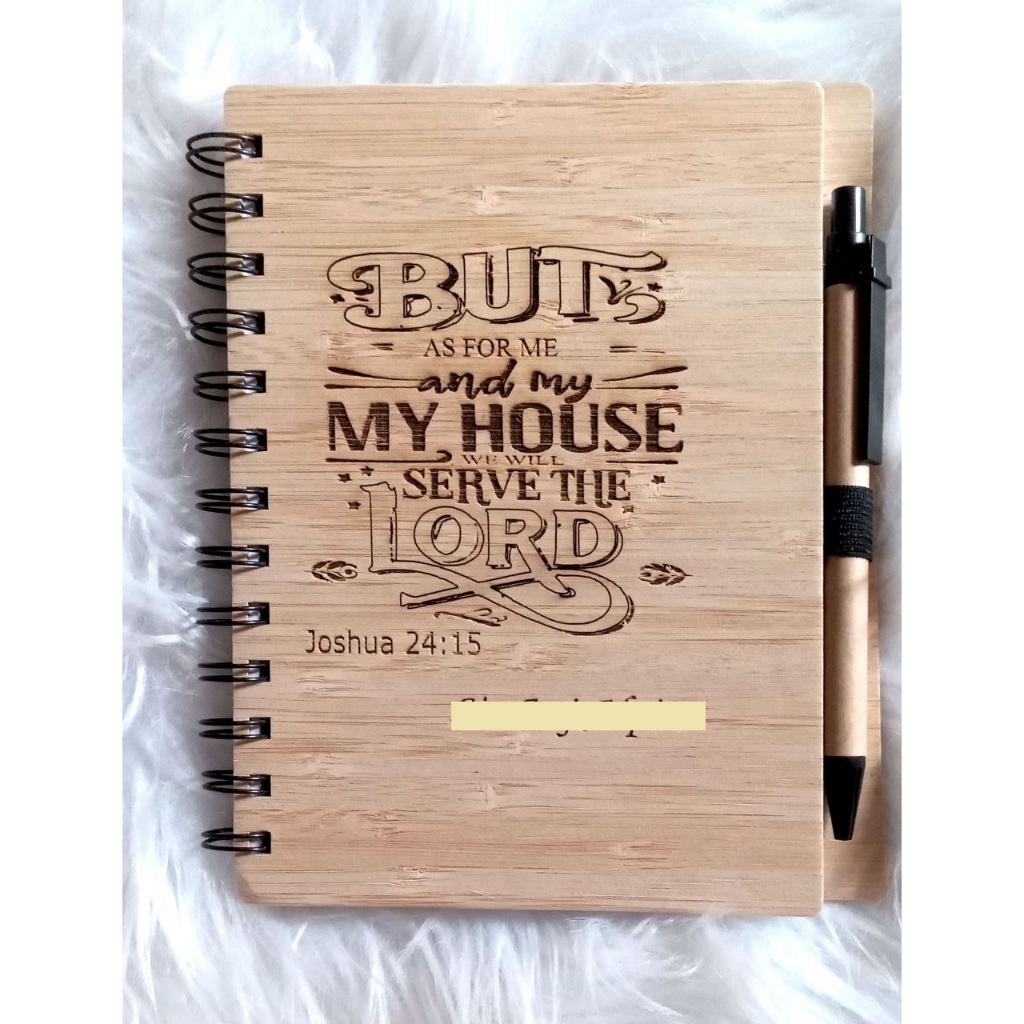 BUT
AS FOR ME
and my
MY HOUSE
WE WILL
SERVE THE
LORD
Joshua 24:15